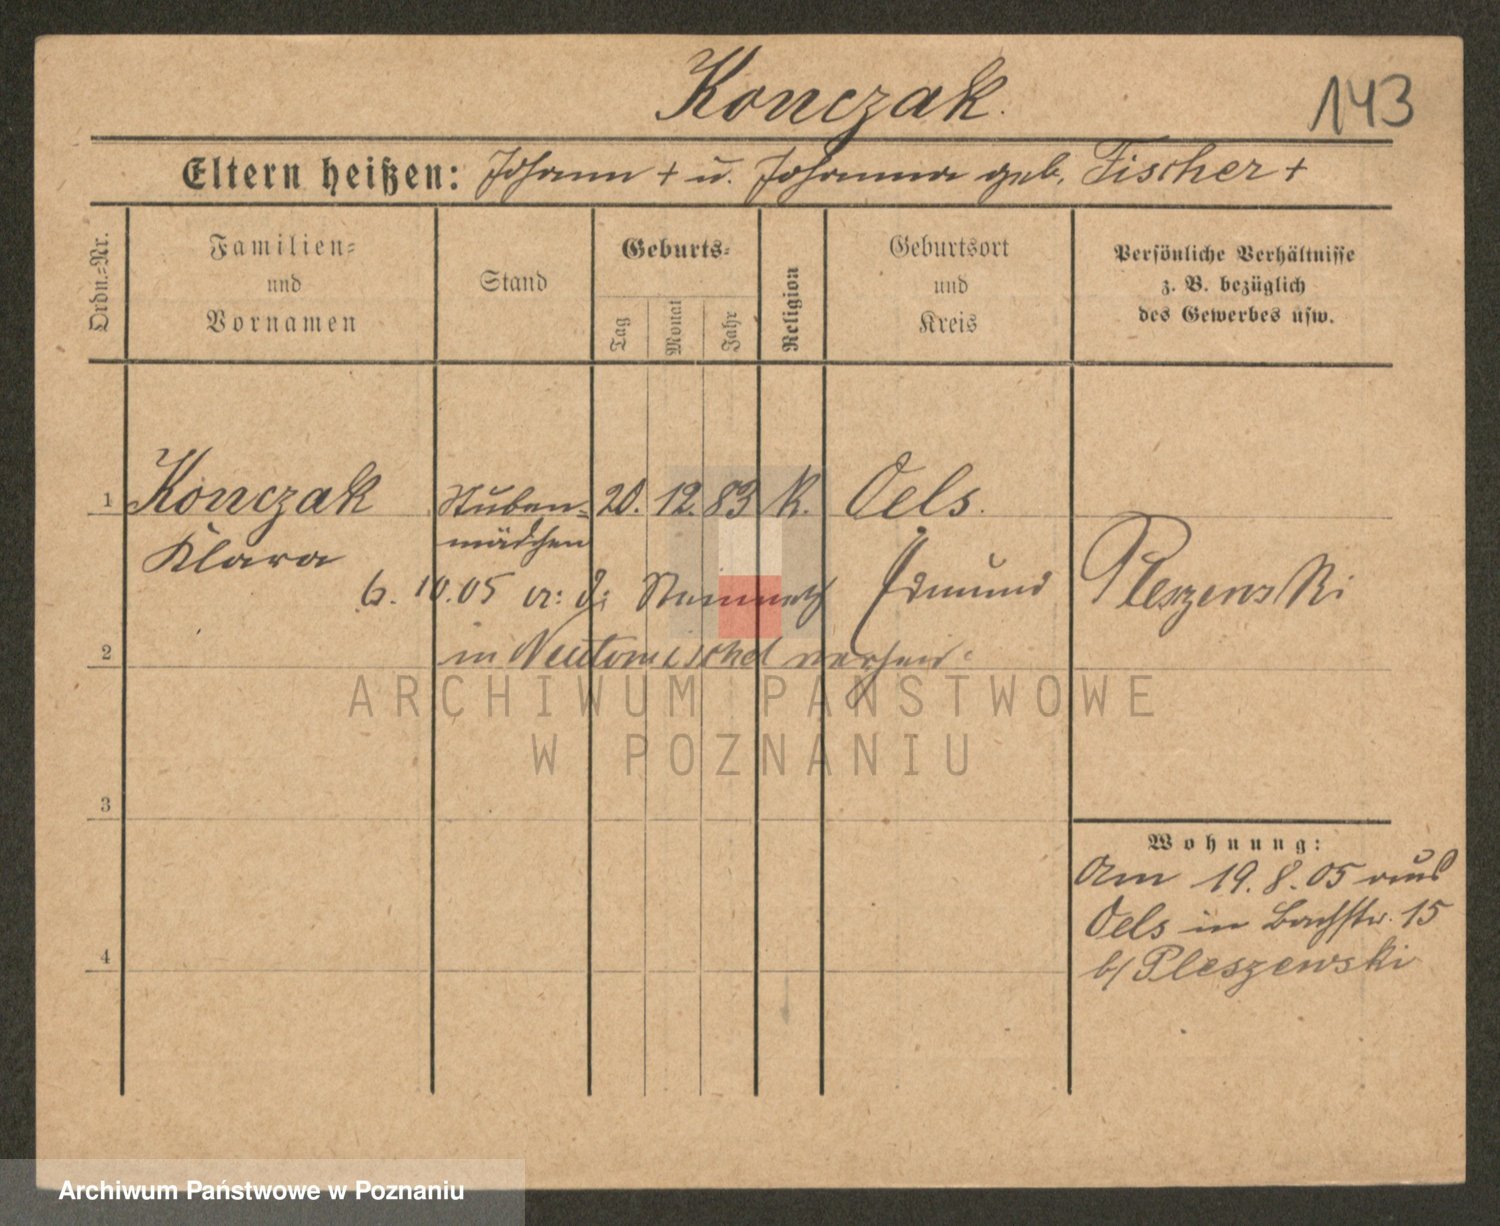 Konczak.
143
Eltern heißen: Johann + u. Johanna geb. Fischer +
Ordn.=Nr.
Familien=
und
Vornamen
Stand
Geburts=
Tag
Monat
Jahr
Religion
Geburtsort
und
Kreis
Persönliche Verhältnisse
z. B. bezüglich
des Gewerbes usw.
1 Konczak Stuben= 20. 12. 83 K. Oels.
Klara mädchen
6. 10. 05 Edmund Pleszewski
2 in Neutomischel
3
4
Wohnung:
Am 19. 8. 05 aus
Oels in Bachstr. 15
b/ Pleszewski
ARCHIWUM PAŃSTWOWE
W POZNANIU
Archiwum Państwowe w Poznaniu